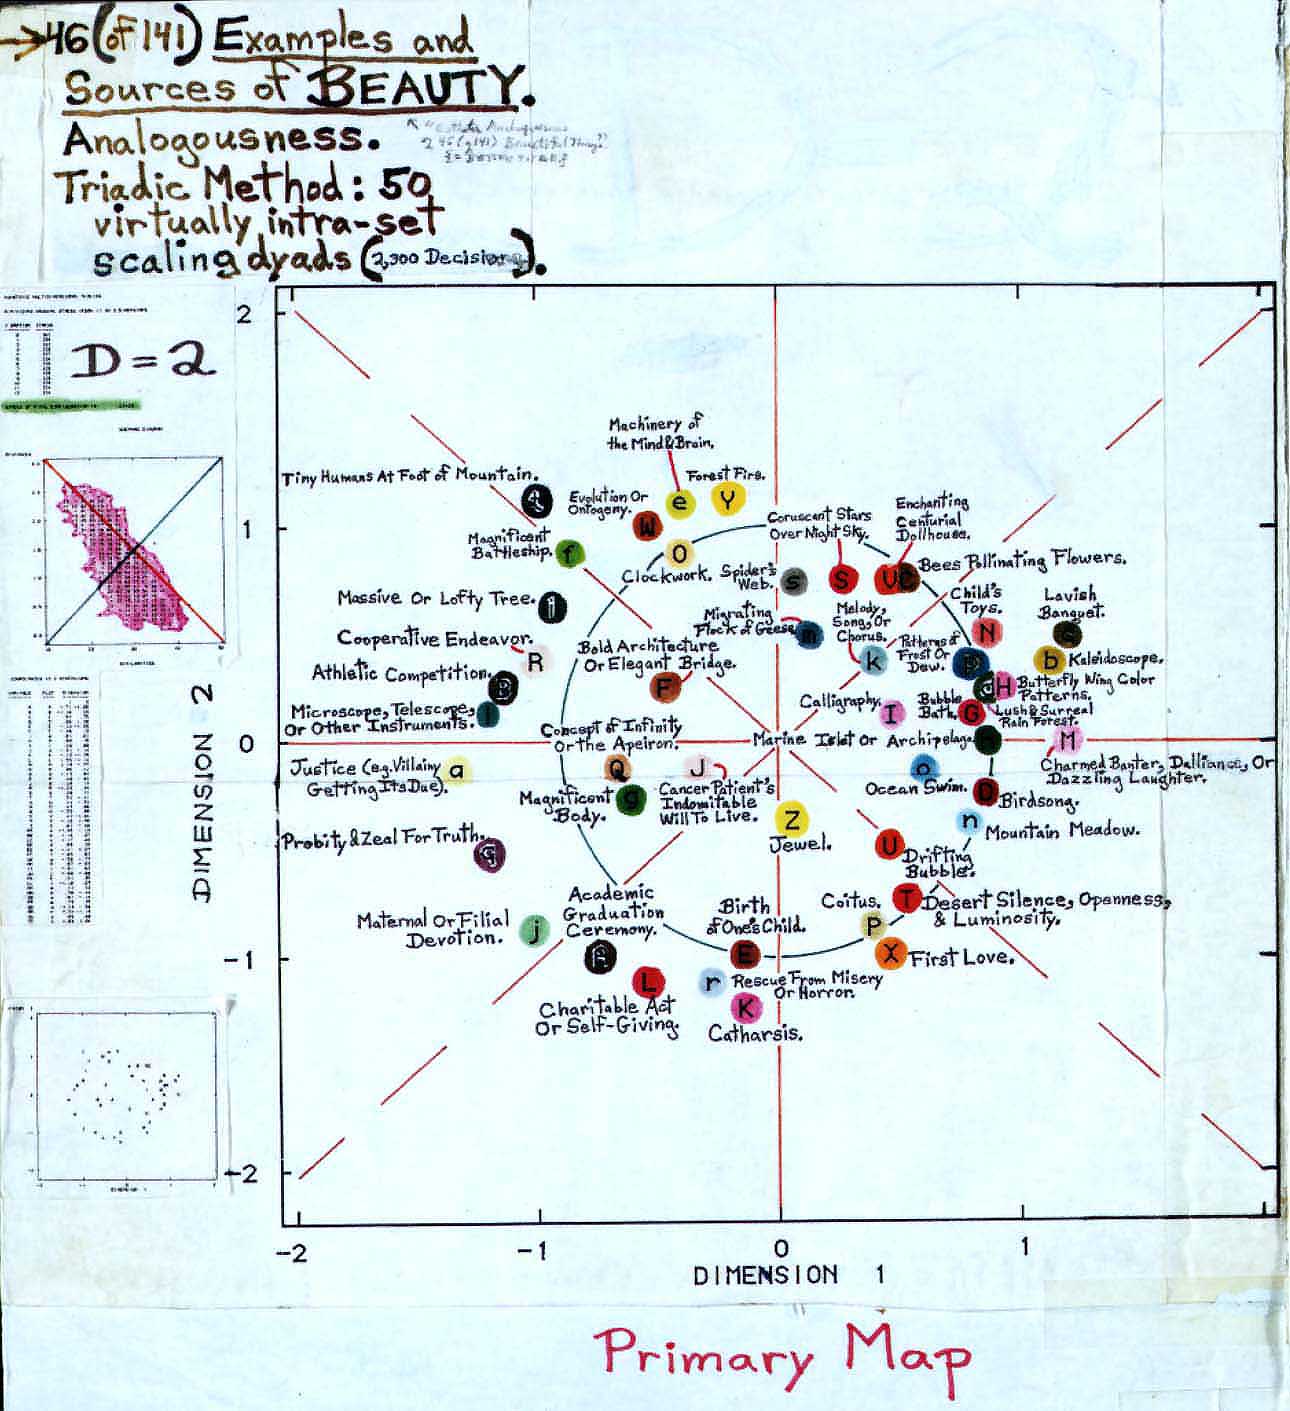 →46 (of 141) Examples and
Sources of BEAUTY.
Analogousness.
Triadic Method: 50
virtually intra-set
scaling dyads (2,300 Decisions).
D = 2
2
1
0
-1
-2
DIMENSION 2
Machinery of
the Mind & Brain.
Tiny Humans At Foot of Mountain.
Forest Fire.
e
Y
Evolution Or
Ontogeny.
W
Enchanting
Centurial
Dollhouse.
Coruscant Stars
Over Night Sky.
Magnificent
Battleship.
f
O
Clockwork.
Spider's
Web.
s
S
V
Bees Pollinating Flowers.
Massive Or Lofty Tree.
i
Child's
Toys.
N
Lavish
Banquet.
c
Migrating
Flock of Geese.
m
Melody,
Song, Or
Chorus.
k
Cooperative Endeavor.
R
Bold Architecture
Or Elegant Bridge.
F
Patterns of
Frost Or
Dew.
p
b
Kaleidoscope.
Athletic Competition.
B
d
H
Butterfly Wing Color
Patterns.
Microscope, Telescope,
Or Other Instruments.
l
Calligraphy.
I
Bubble
Bath.
G
Lush & Surreal
Rain Forest.
Concept of Infinity
Or the Apeiron.
Q
Marine Islet Or Archipelago.
M
Charmed Banter, Dalliance, Or
Dazzling Laughter.
Justice (e.g. Villainy
Getting Its Due).
a
J
Cancer Patient's
Indomitable
Will To Live.
o
Ocean Swim.
D
Birdsong.
Magnificent
Body.
g
Z
Jewel.
n
Mountain Meadow.
Probity & Zeal For Truth.
q
U
Drifting
Bubble.
Academic
Graduation
Ceremony.
A
Maternal Or Filial
Devotion.
j
Birth
of One's Child.
E
Coitus.
P
T
Desert Silence, Openness,
& Luminosity.
X
First Love.
L
Charitable Act
Or Self-Giving.
r
Rescue From Misery
Or Horror.
K
Catharsis.
-2
-1
0
1
DIMENSION 1
Primary Map